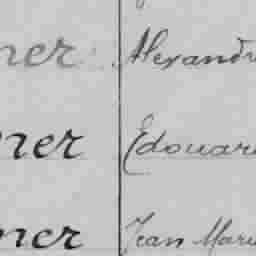 ner Alexandr
ner Edouar
ner Jean Marie